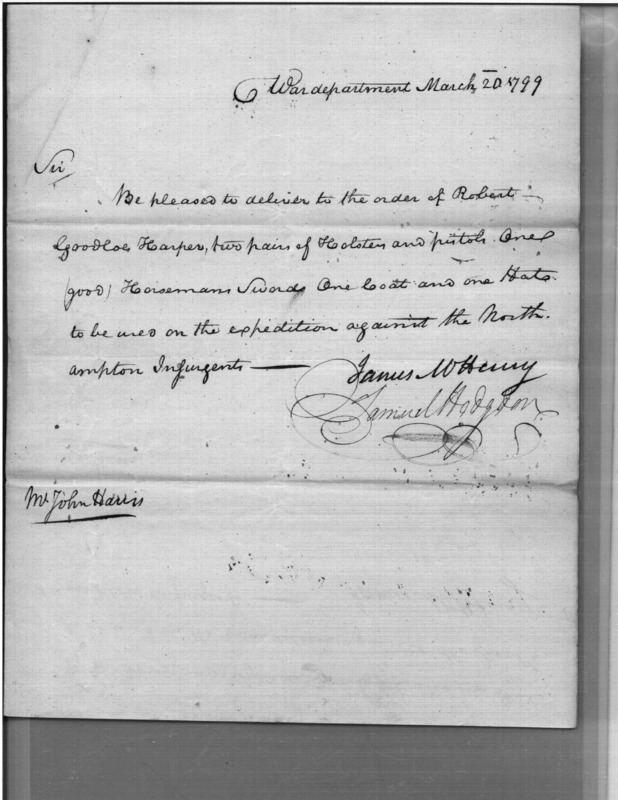 War department March 20 1799
Sir
Be pleased to deliver to the order of Robert
Goodloe Harper, two pairs of Holsters and pistols. One
(good) Horsemans Sword One Coat and one Hat.
to be used on the expedition against the North-
ampton Insurgents —
James McHenry
Samuel Hodgdon
Mr John Harris